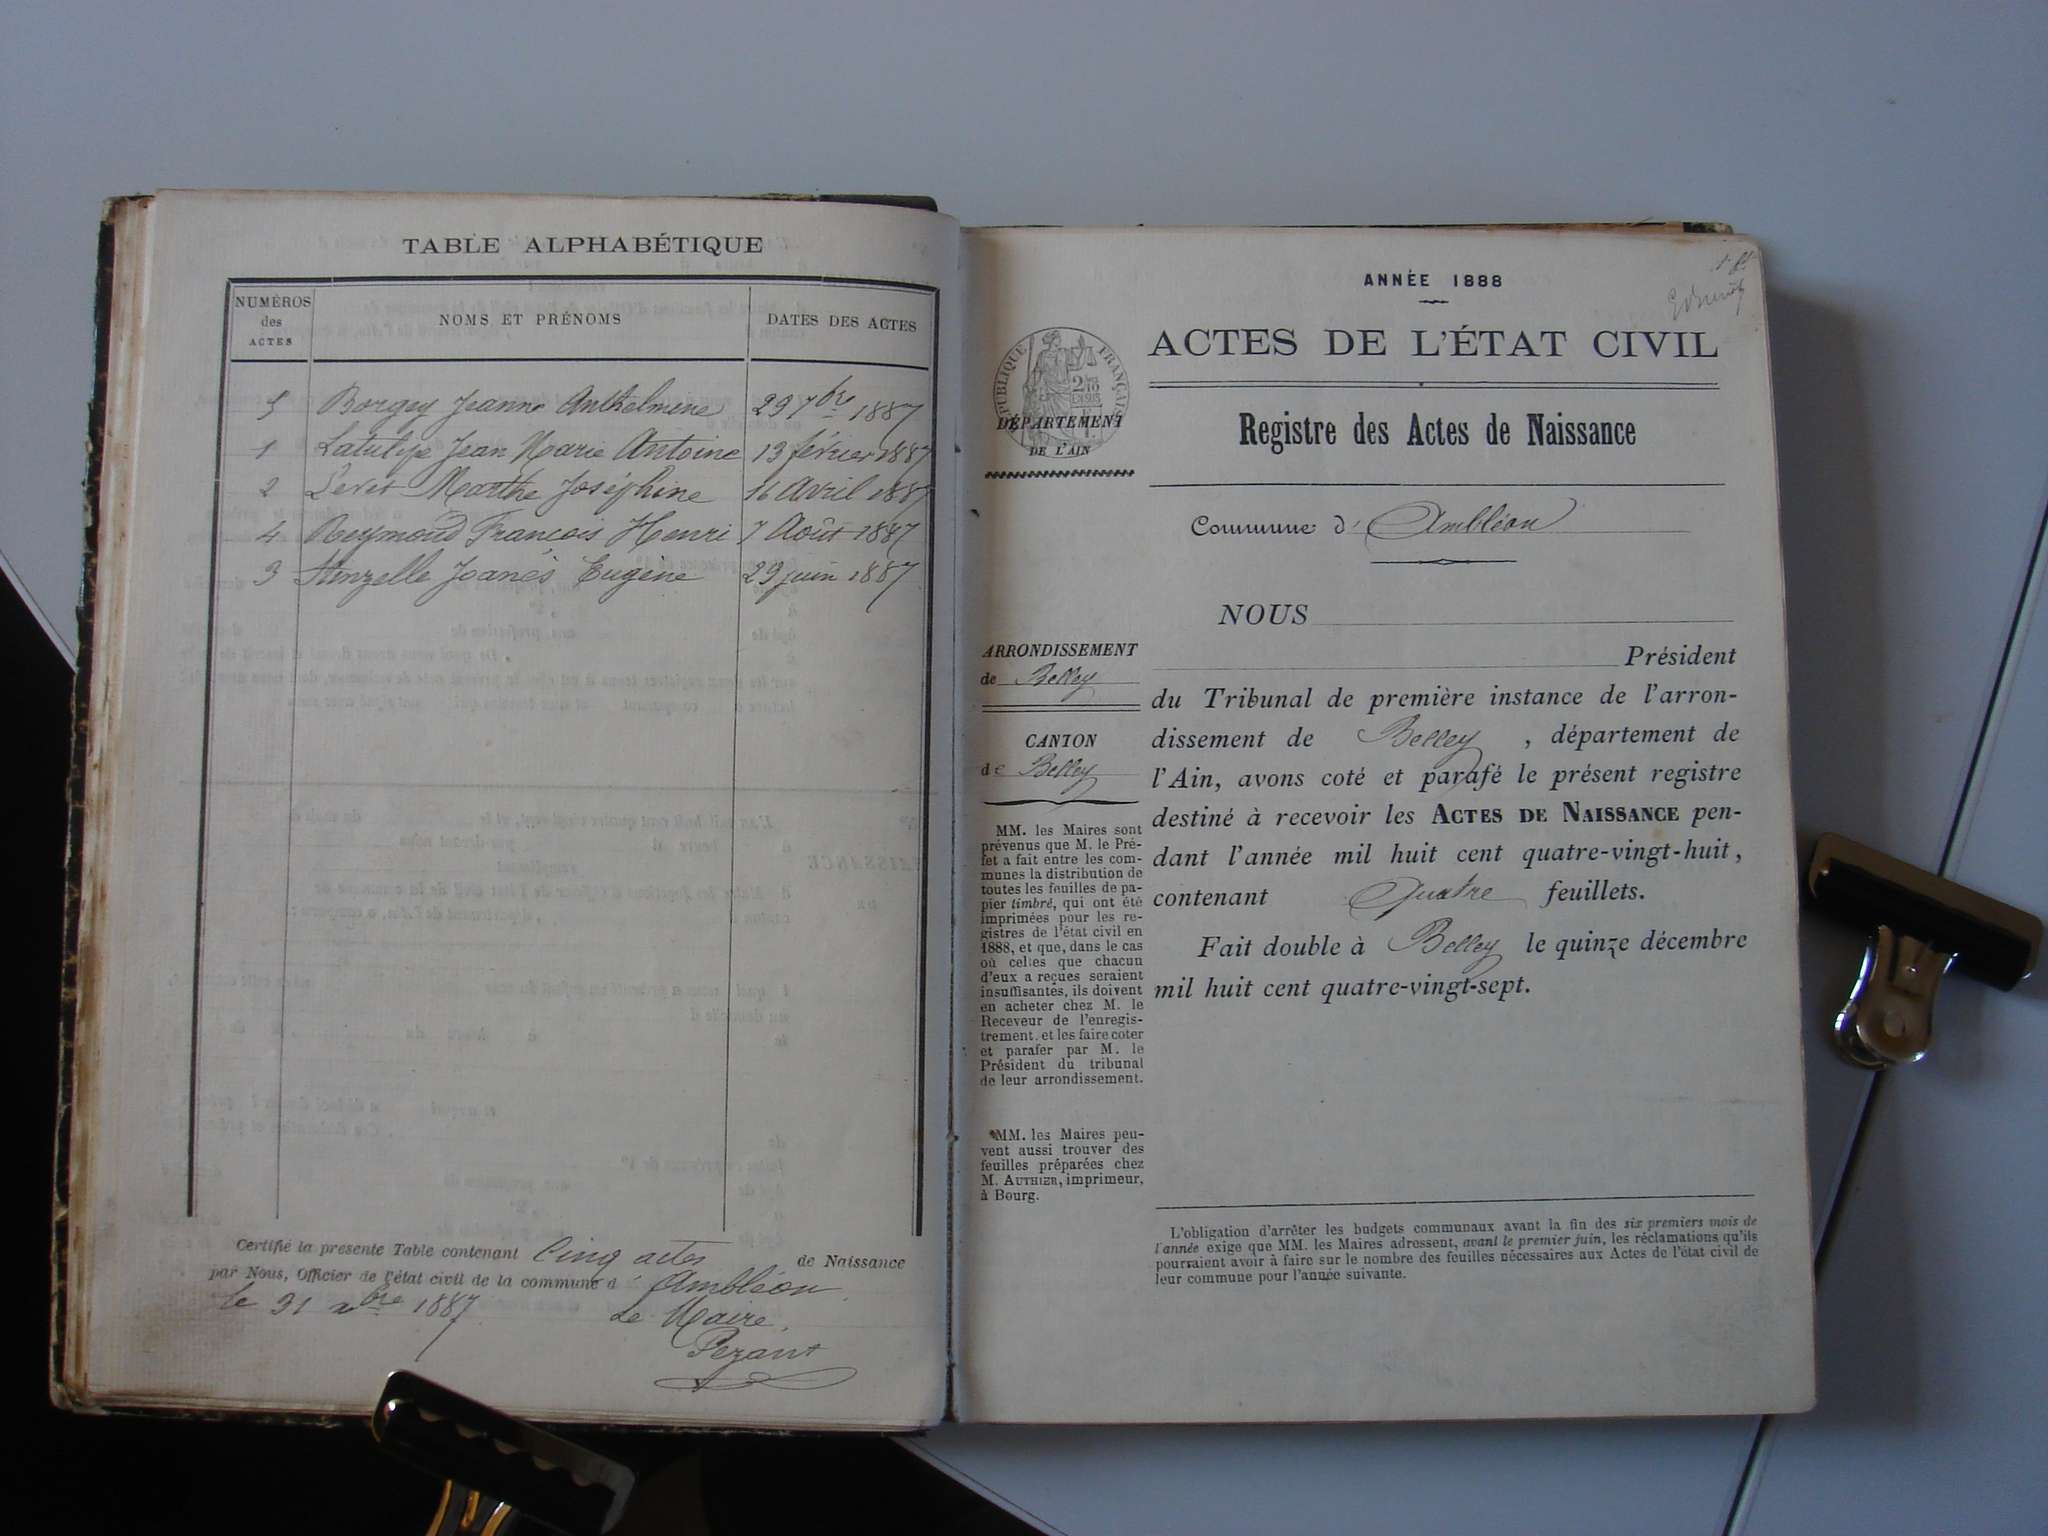 TABLE ALPHABÉTIQUE
NUMÉROS des ACTES
NOMS ET PRÉNOMS
DATES DES ACTES
5 Borgey Jeanne Anthelmine 29 7bre 1887
1 Latulipe Jean Marie Antoine 13 février 1887
2 Levet Marthe Joséphine 16 Avril 1887
4 Reymond François Henri 7 Août 1887
3 Joanès Eugène 29 juin 1887
Certifié la présente Table contenant Cinq actes de Naissance
par Nous, Officier de l'état civil de la commune d' Ambléon
le 31 xbre 1887 Le Maire,
Pezant
ANNÉE 1888
ACTES DE L'ÉTAT CIVIL
RÉPUBLIQUE FRANÇAISE
DÉPARTEMENT
DE L'AIN
Registre des Actes de Naissance
Commune d' Ambléon
NOUS
Président
du Tribunal de première instance de l'arron-
dissement de Belley, département de
l'Ain, avons coté et parafé le présent registre
destiné à recevoir les ACTES DE NAISSANCE pen-
dant l'année mil huit cent quatre-vingt-huit,
contenant Quatre feuillets.
Fait double à Belley le quinze décembre
mil huit cent quatre-vingt-sept.
ARRONDISSEMENT
de Belley
CANTON
de Belley
MM. les Maires sont
prévenus que M. le Pré-
fet a fait entre les com-
munes la distribution de
toutes les feuilles de pa-
pier timbré, qui ont été
imprimées pour les re-
gistres de l'état civil en
1888, et que, dans le cas
où celles que chacun
d'eux a reçues seraient
insuffisantes, ils doivent
en acheter chez M. le
Receveur de l'enregis-
trement, et les faire coter
et parafer par M. le
Président du tribunal
de leur arrondissement.
MM. les Maires peu-
vent aussi trouver des
feuilles préparées chez
M. AUTHIER, imprimeur,
à Bourg.
L'obligation d'arrêter les budgets communaux avant la fin des six premiers mois de
l'année exige que MM. les Maires adressent, avant le premier juin, les réclamations qu'ils
pourraient avoir à faire sur le nombre des feuilles nécessaires aux Actes de l'état civil de
leur commune pour l'année suivante.